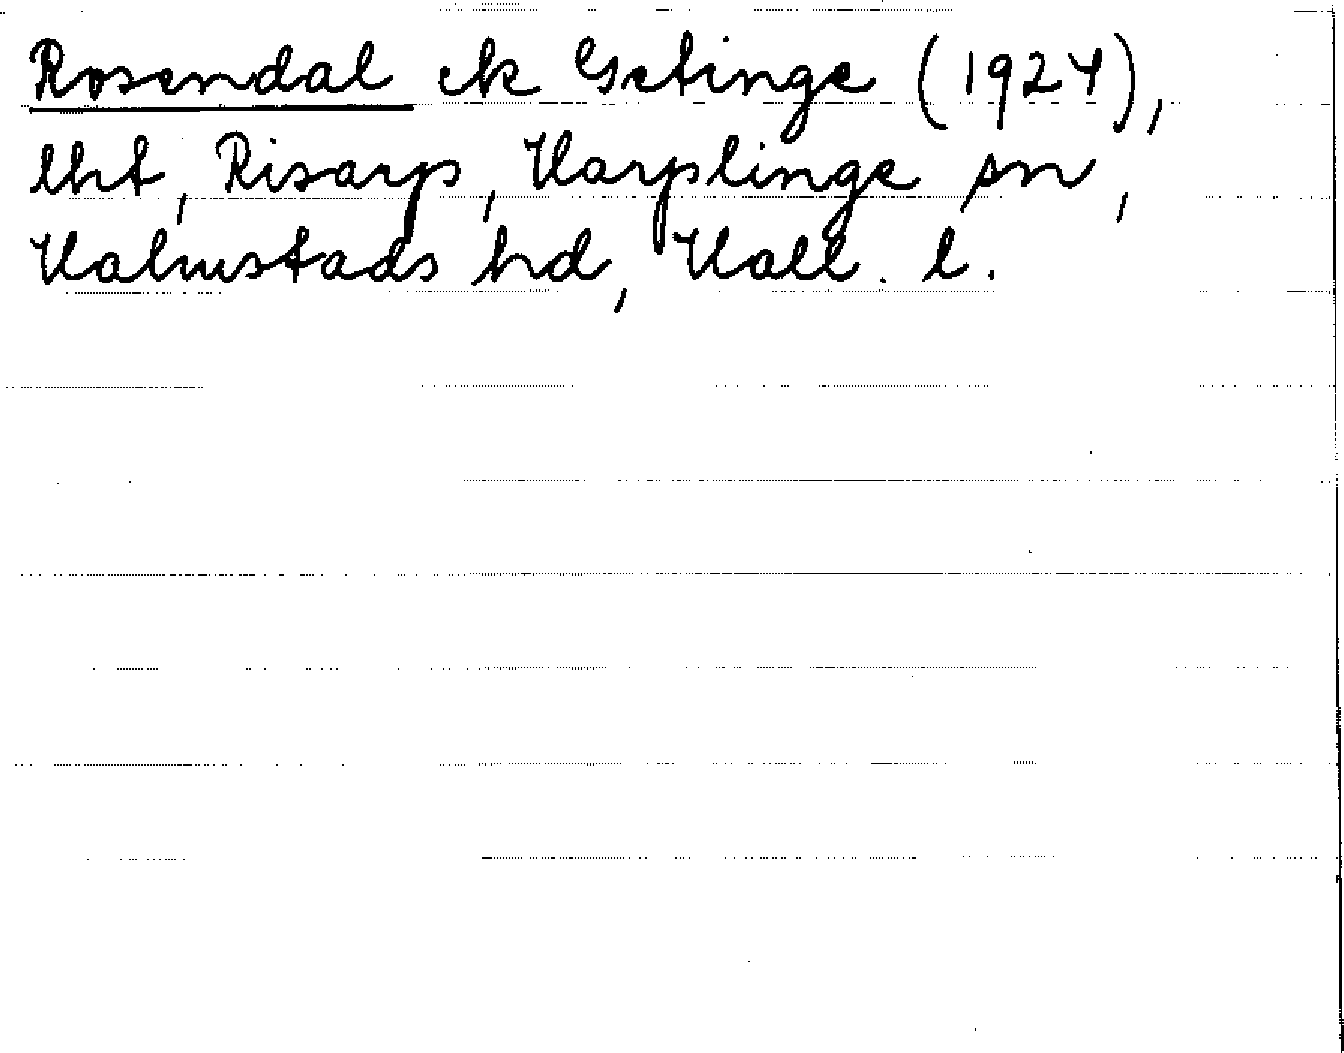 Rosendal ek Getinge (1924),
lht, Risarp, Harplinge sn,
Halmstads hd, Hall. l.